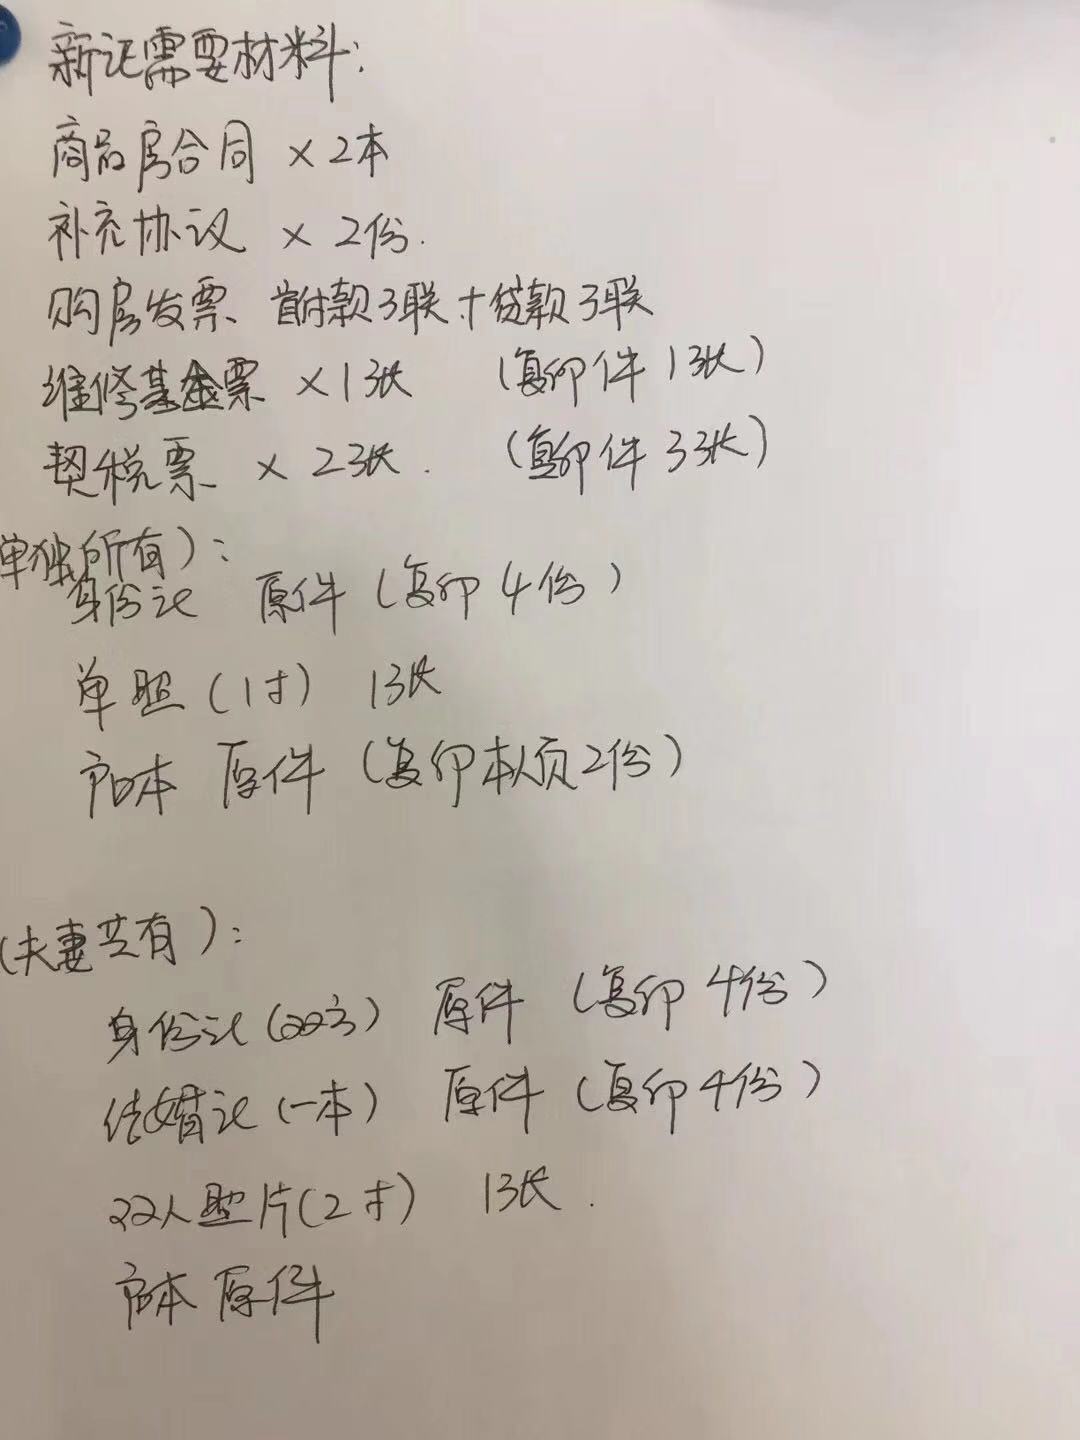 新证需要材料:
商品房合同 ×2本
补充协议 × 2份.
购房发票 首付款3联+贷款3联
维修基金票 ×1张 (复印件1张)
契税票 ×2张. (复印件3张)
单独所有):
身份证 原件(复印4份)
单照(1寸) 1张
户口本 原件(复印本人页2份)
(夫妻共有):
身份证(双方) 原件(复印4份)
结婚证(一本) 原件(复印4份)
双人照片(2寸) 1张.
户口本 原件